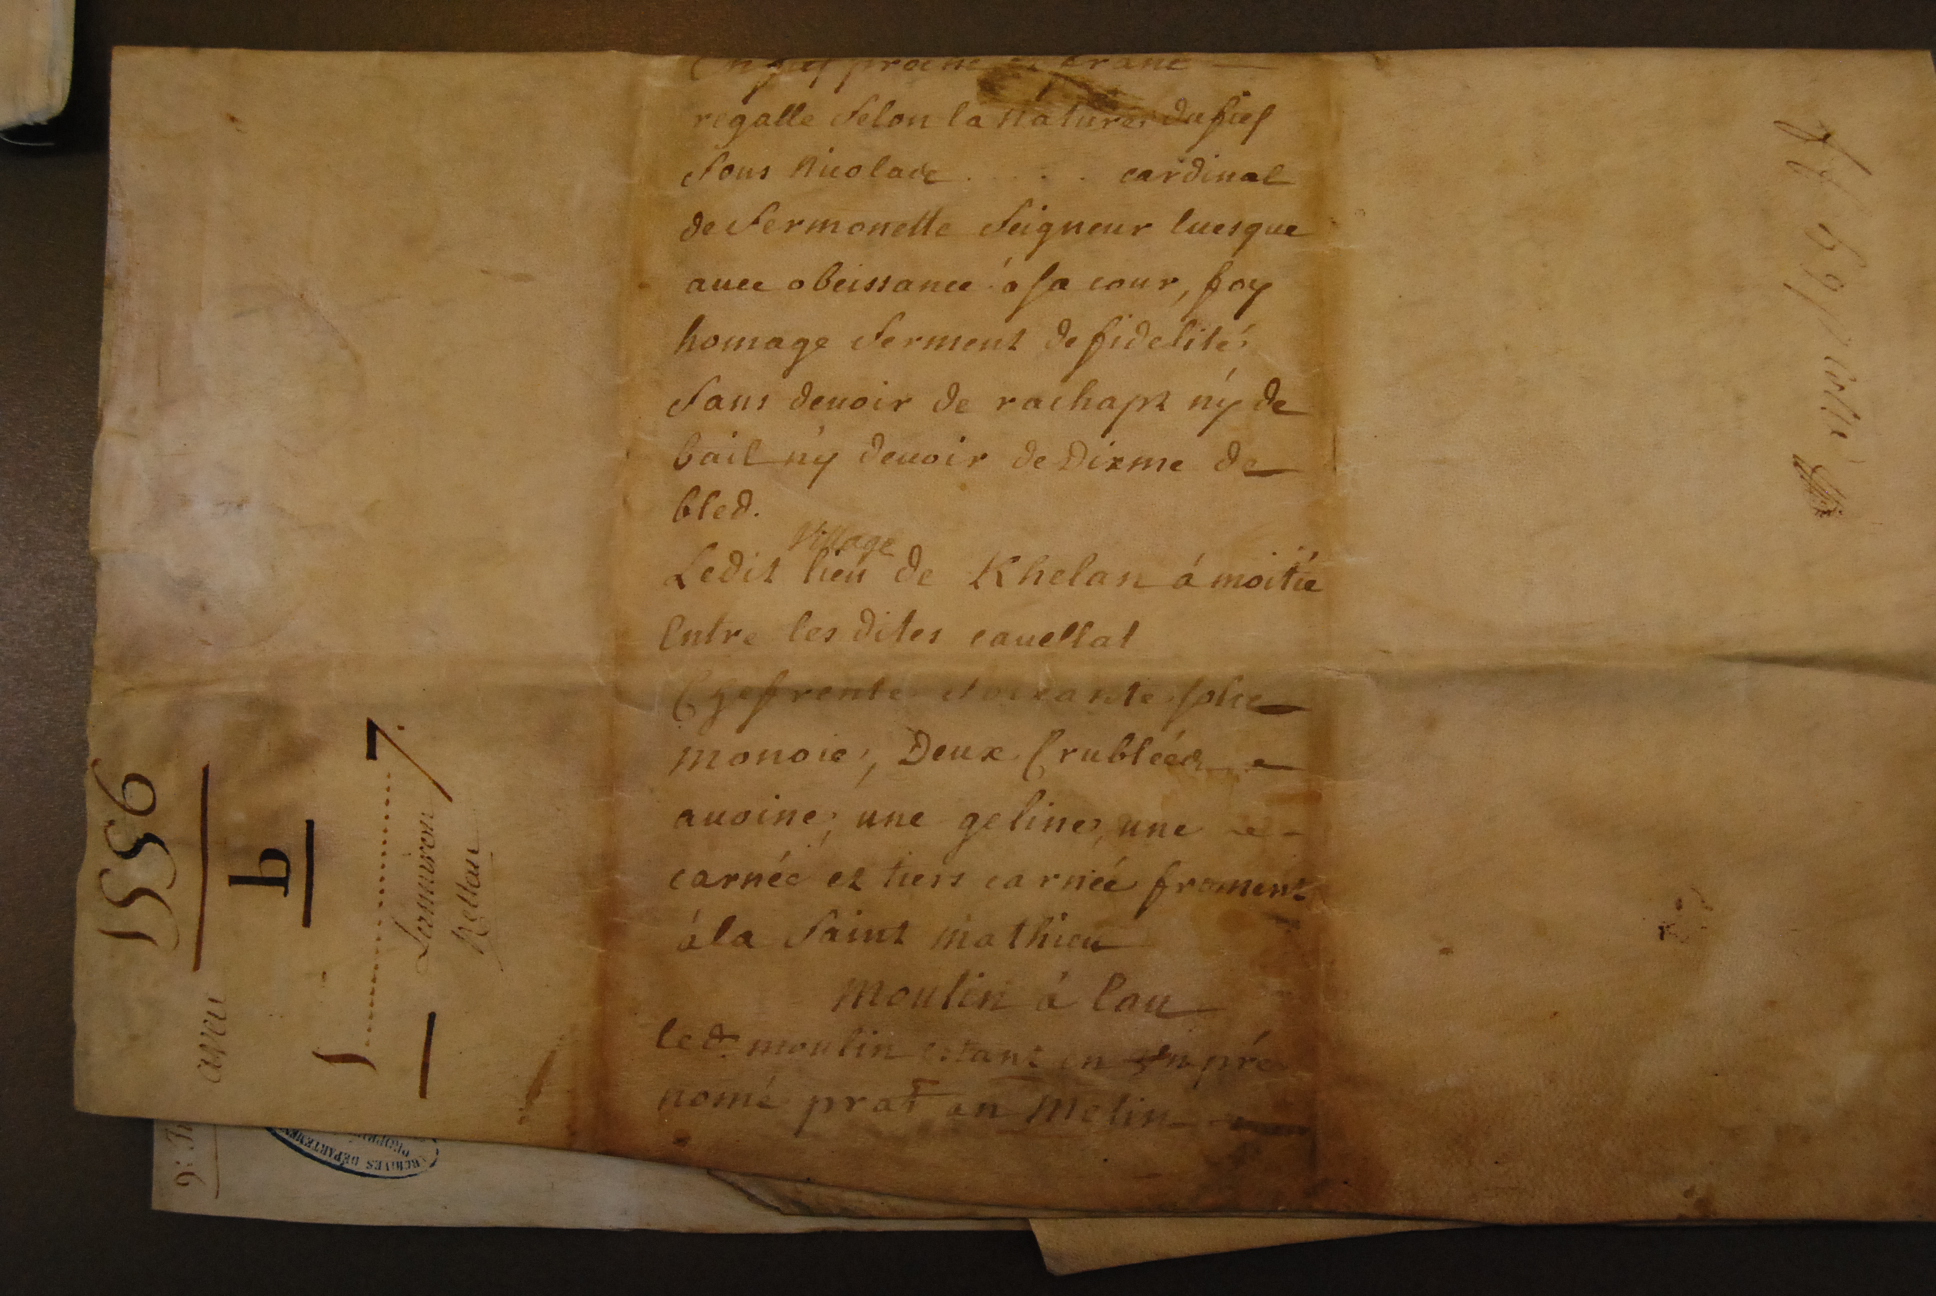 regalle selon la nature du fief
sous Nicolade . . . . cardinal
de sermonette seigneur luesque
auec obeissance á sa cour, foy
homage serment de fidelité
sans deuoir de rachapt ny de
bail ny deuoir de dixme de
bled.
village
Ledit lieu de Khelan á moitié
Entre les dites cauellat
Chefrente soixante solz
monoie, Deux Crublééz
auoine, une geline, une
carnéé et tiers carnéé froment
á la saint mathieu
Moulin á Eau
led. moulin estant en un pré
nomé prat an Melin
1556
b
aveu
1 7
Lanmiron
Kellan
ARCHIVES DÉPARTEMEN
PROPRI